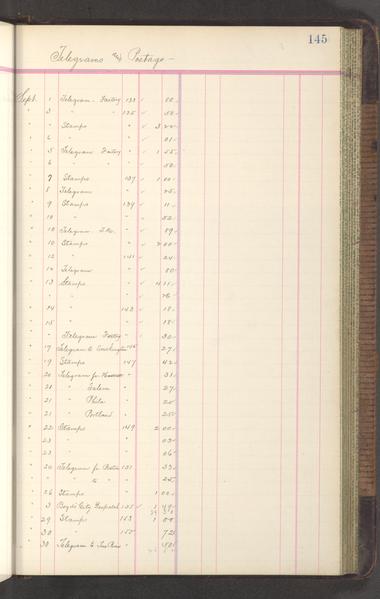 145
Telegrams and Postage —
Sept. 1 Telegram - Factory 133 ✓ 50
" 3 " " 135 ✓ 50
" " Stamps " ✓ 3 22
" 6 " " ✓ 01
" 5 Telegram Factory " ✓ 1 55
" 6 " " " 50
7 Stamps 137 ✓ 1 00
" 8 Telegram " ✓ 25
" 9 Stamps 139 ✓ 11
" 10 " " 52
" 10 Telegram " ✓ 89
" 10 Stamps " ✓ 2 00
" 12 " 141 ✓ 24
" 12 Telegram " ✓ 50
" 13 Stamps " ✓ 4 11
" " " " 76
" 14 " 143 ✓ 18
" 15 " " 18
" " Telegram Factory " 30
" 17 Telegram to Washington 145 27
" 19 Stamps 147 42
" 20 Telegram for " 31
" 21 " Salem " 27
" 21 " Phila " 25
" 21 " Portland " 25
" 22 Stamps 149 2 00
" 23 " " 03
" 23 " " 06
" 20 Telegram for Boston 151 33
" " " to " " 25
" 26 Stamps " 1 00
" 3 Boyds City Despatch 125 ✓ 1 48
" 29 Stamps 153 1 04
" 30 " 155 72
" 30 Telegram to " 50